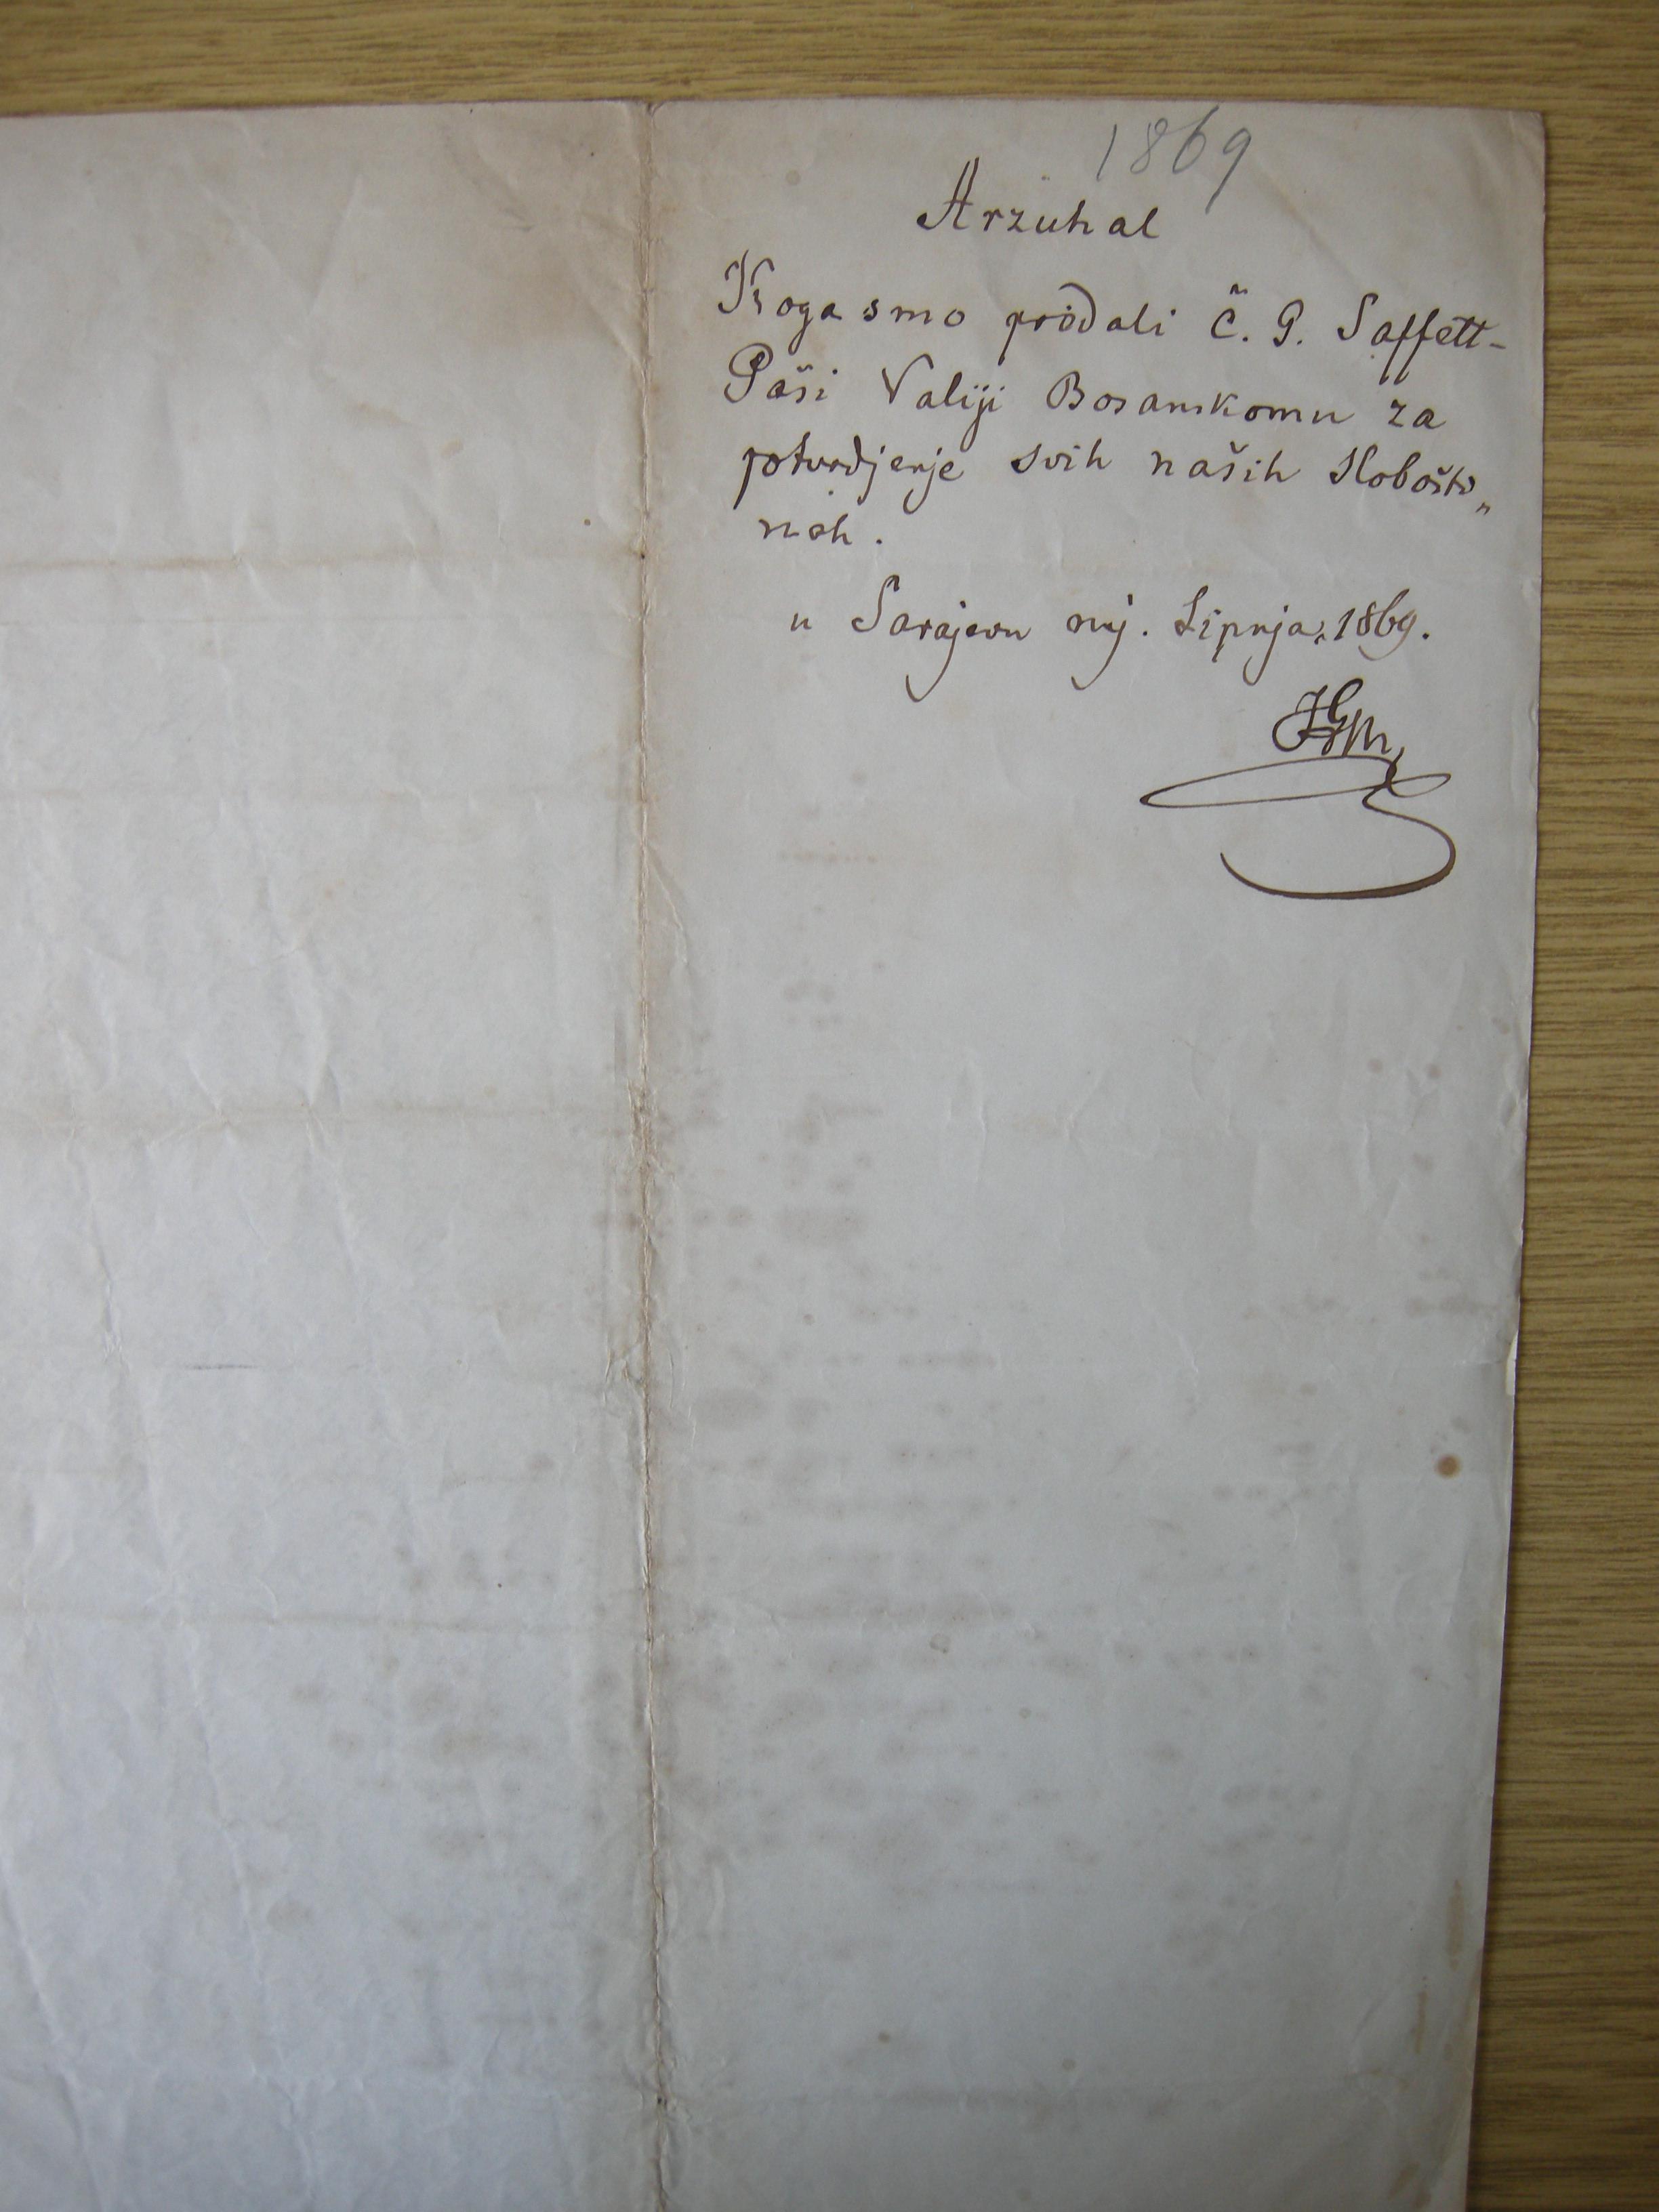 1869
Arzuhal
Koga smo pridali Č. G. Saffett-
Paši Valiji Bosanskomu za
potvrdjenje svih naših Slobošti„
nah.
u Sarajevu mj. Lipnja, 1869.